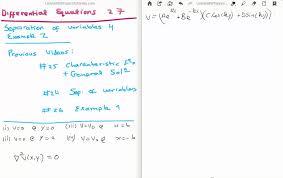 Differential Equations 27
Separation of variables 4
Example 2
Previous Videos:
#25 Characteristic Eqn
+ General Soln
#26 Sep. of variables
Example 1
(i) V=0 @ y=0 (iii) V=V₀ @ x=b
(iv) V=V₀ @ x=-b
∇²V(x,y) = 0
V = (Ae^kx + Be^-kx)(C cos(ky) + D sin(ky))